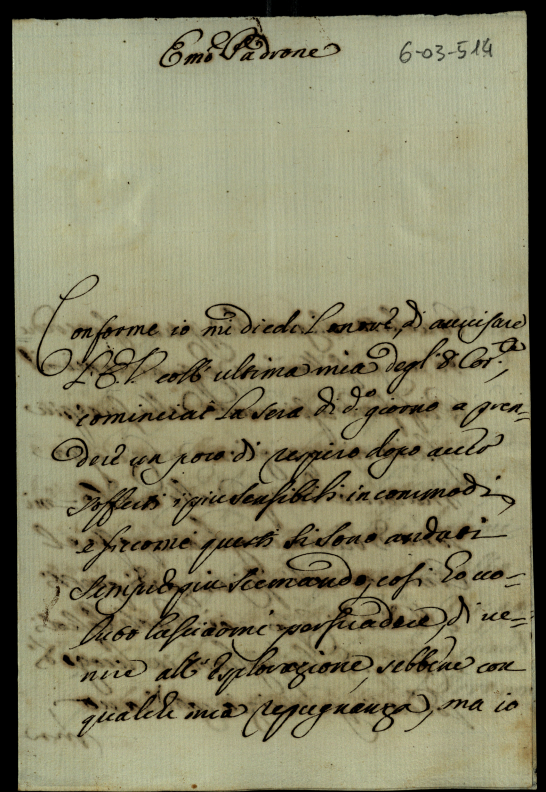 Emo Padrone
6-03-514
Conforme io mi diedi l'onore, di avvisare
L'E.V. coll' ultima mia degl' 8 Corte,
cominciai la sera di do giorno a pren-
dere un poco di respiro dopo aver
sofferti i piu sensibili incommodi,
e siccome questi si sono andati
sempre piu scemando, cosi ho vo-
luto lasciarmi persuadere, di ve-
nire all' esplorazione, sebbene con
qualche mia repugnanza, ma io